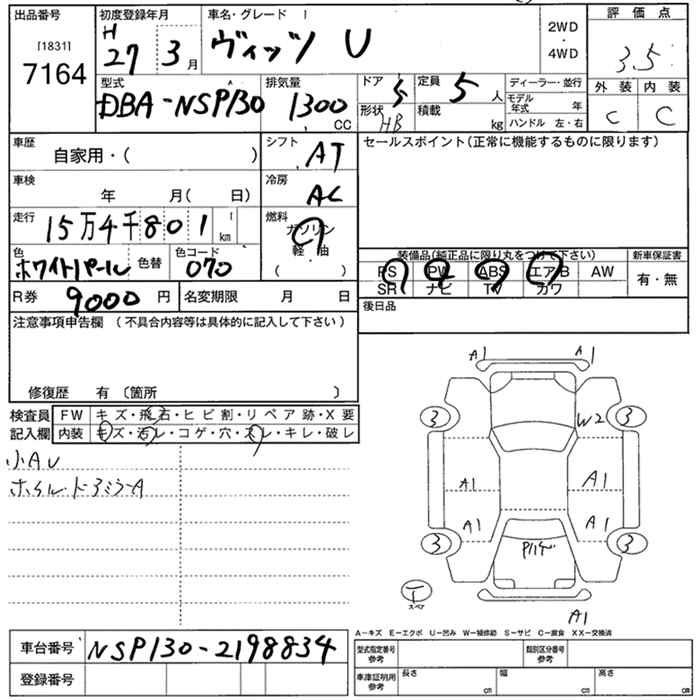 出品番号 初度登録年月 車名・グレード 評価点
[1831] 7164 H 27 3月 ヴィッツ U 2WD・4WD 3.5
型式 排気量 ドア 定員 ディーラー・並行 外装 内装
DBA-NSP130 1300 CC 5 5人 モデル年式 年 C C
形状 HB 積載 kg ハンドル 左・右
車歴 シフト セールスポイント(正常に機能するものに限ります)
自家用・( ) AT
車検 冷房
年 月( 日) AC
走行 燃料
15万4千801km ガソリン
色 色コード 軽・油 装備品(純正品に限り丸をつけて下さい) 新車保証書
ホワイトパール 色替 070 ( ) PS PW ABS エアB AW 有・無
SR ナビ TV カワ
R券 9000円 名変期限 月 日 後日品
注意事項申告欄 (不具合内容等は具体的に記入して下さい)
修復歴 有 〔箇所 〕
検査員 FW キズ・飛石・ヒビ割・リペア跡・X要
記入欄 内装 キズ・汚レ・コゲ・穴・スレ・キレ・破レ
小AU
ホイル・ドアミラーA
A1 A1
3 3
W2
A1 A1
A1 A1
3 3
スペア
A1
A-キズ E-エクボ U-凹み W-補修跡 S-サビ C-腐食 XX-交換済
車台番号 NSP130-2198834 型式指定番号 参考 類別区分番号 参考
登録番号 車庫証明用 参考 長さ cm 幅 cm 高さ cm